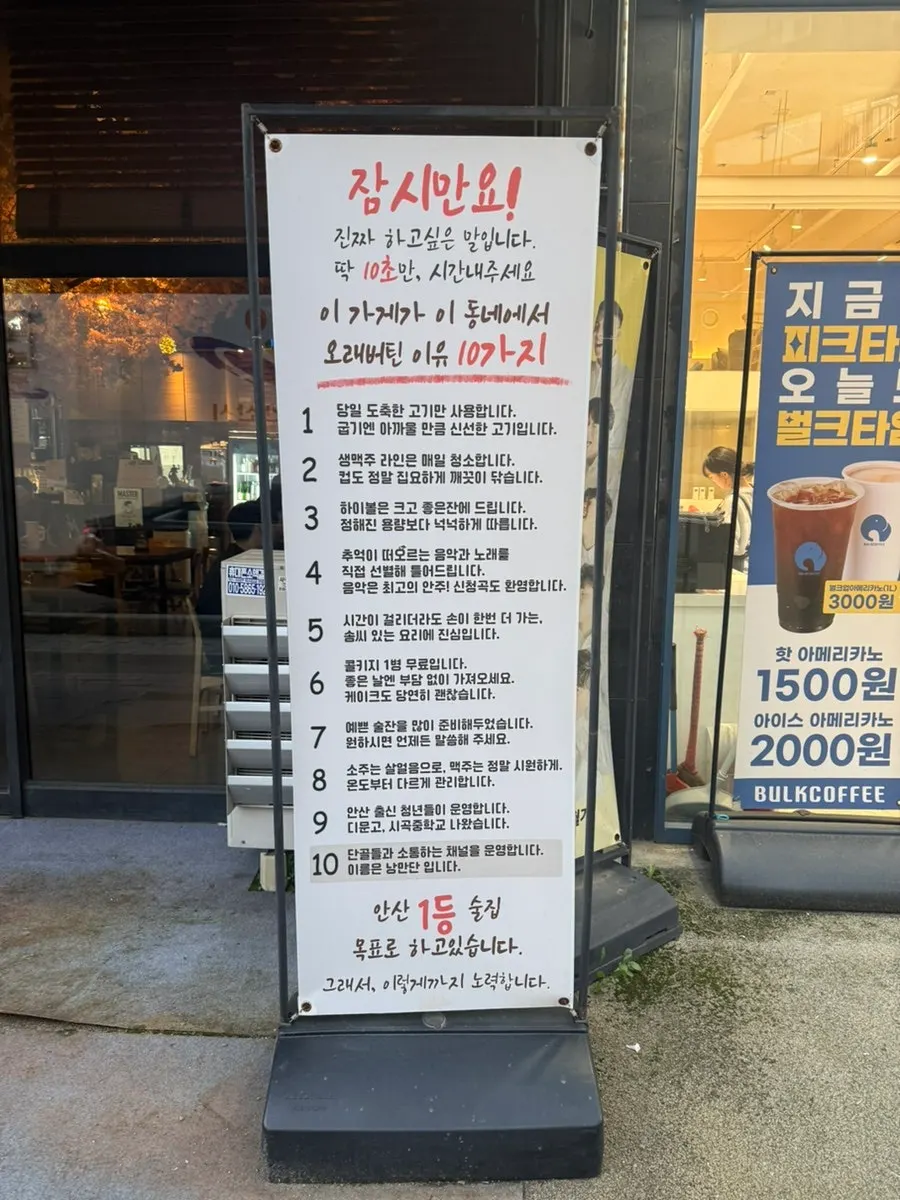 잠시만요!
진짜 하고싶은 말입니다.
딱 10초만, 시간내주세요
이 가게가 이 동네에서
오래버틴 이유 10가지
1 당일 도축한 고기만 사용합니다.
굽기엔 아까울 만큼 신선한 고기입니다.
2 생맥주 라인은 매일 청소합니다.
컵도 정말 집요하게 깨끗이 닦습니다.
3 하이볼은 크고 좋은잔에 드립니다.
정해진 용량보다 넉넉하게 따릅니다.
4 추억이 떠오르는 음악과 노래를
직접 선별해 틀어드립니다.
음악은 최고의 안주! 신청곡도 환영합니다.
5 시간이 걸리더라도 손이 한번 더 가는,
솜씨 있는 요리에 진심입니다.
6 콜키지 1병 무료입니다.
좋은 날엔 부담 없이 가져오세요.
케이크도 당연히 괜찮습니다.
7 예쁜 술잔을 많이 준비해두었습니다.
원하시면 언제든 말씀해 주세요.
8 소주는 살얼음으로, 맥주는 정말 시원하게.
온도부터 다르게 관리합니다.
9 안산 출신 청년들이 운영합니다.
디문고, 시곡중학교 나왔습니다.
10 단골들과 소통하는 채널을 운영합니다.
이름은 낭만단 입니다.
안산 1등 술집
목표로 하고있습니다.
그래서, 이렇게까지 노력합니다.
지금
피크타
오늘
벌크타임
벌크업아메리카노(1L)
3000원
핫 아메리카노
1500원
아이스 아메리카노
2000원
BULKCOFFEE
MASTER